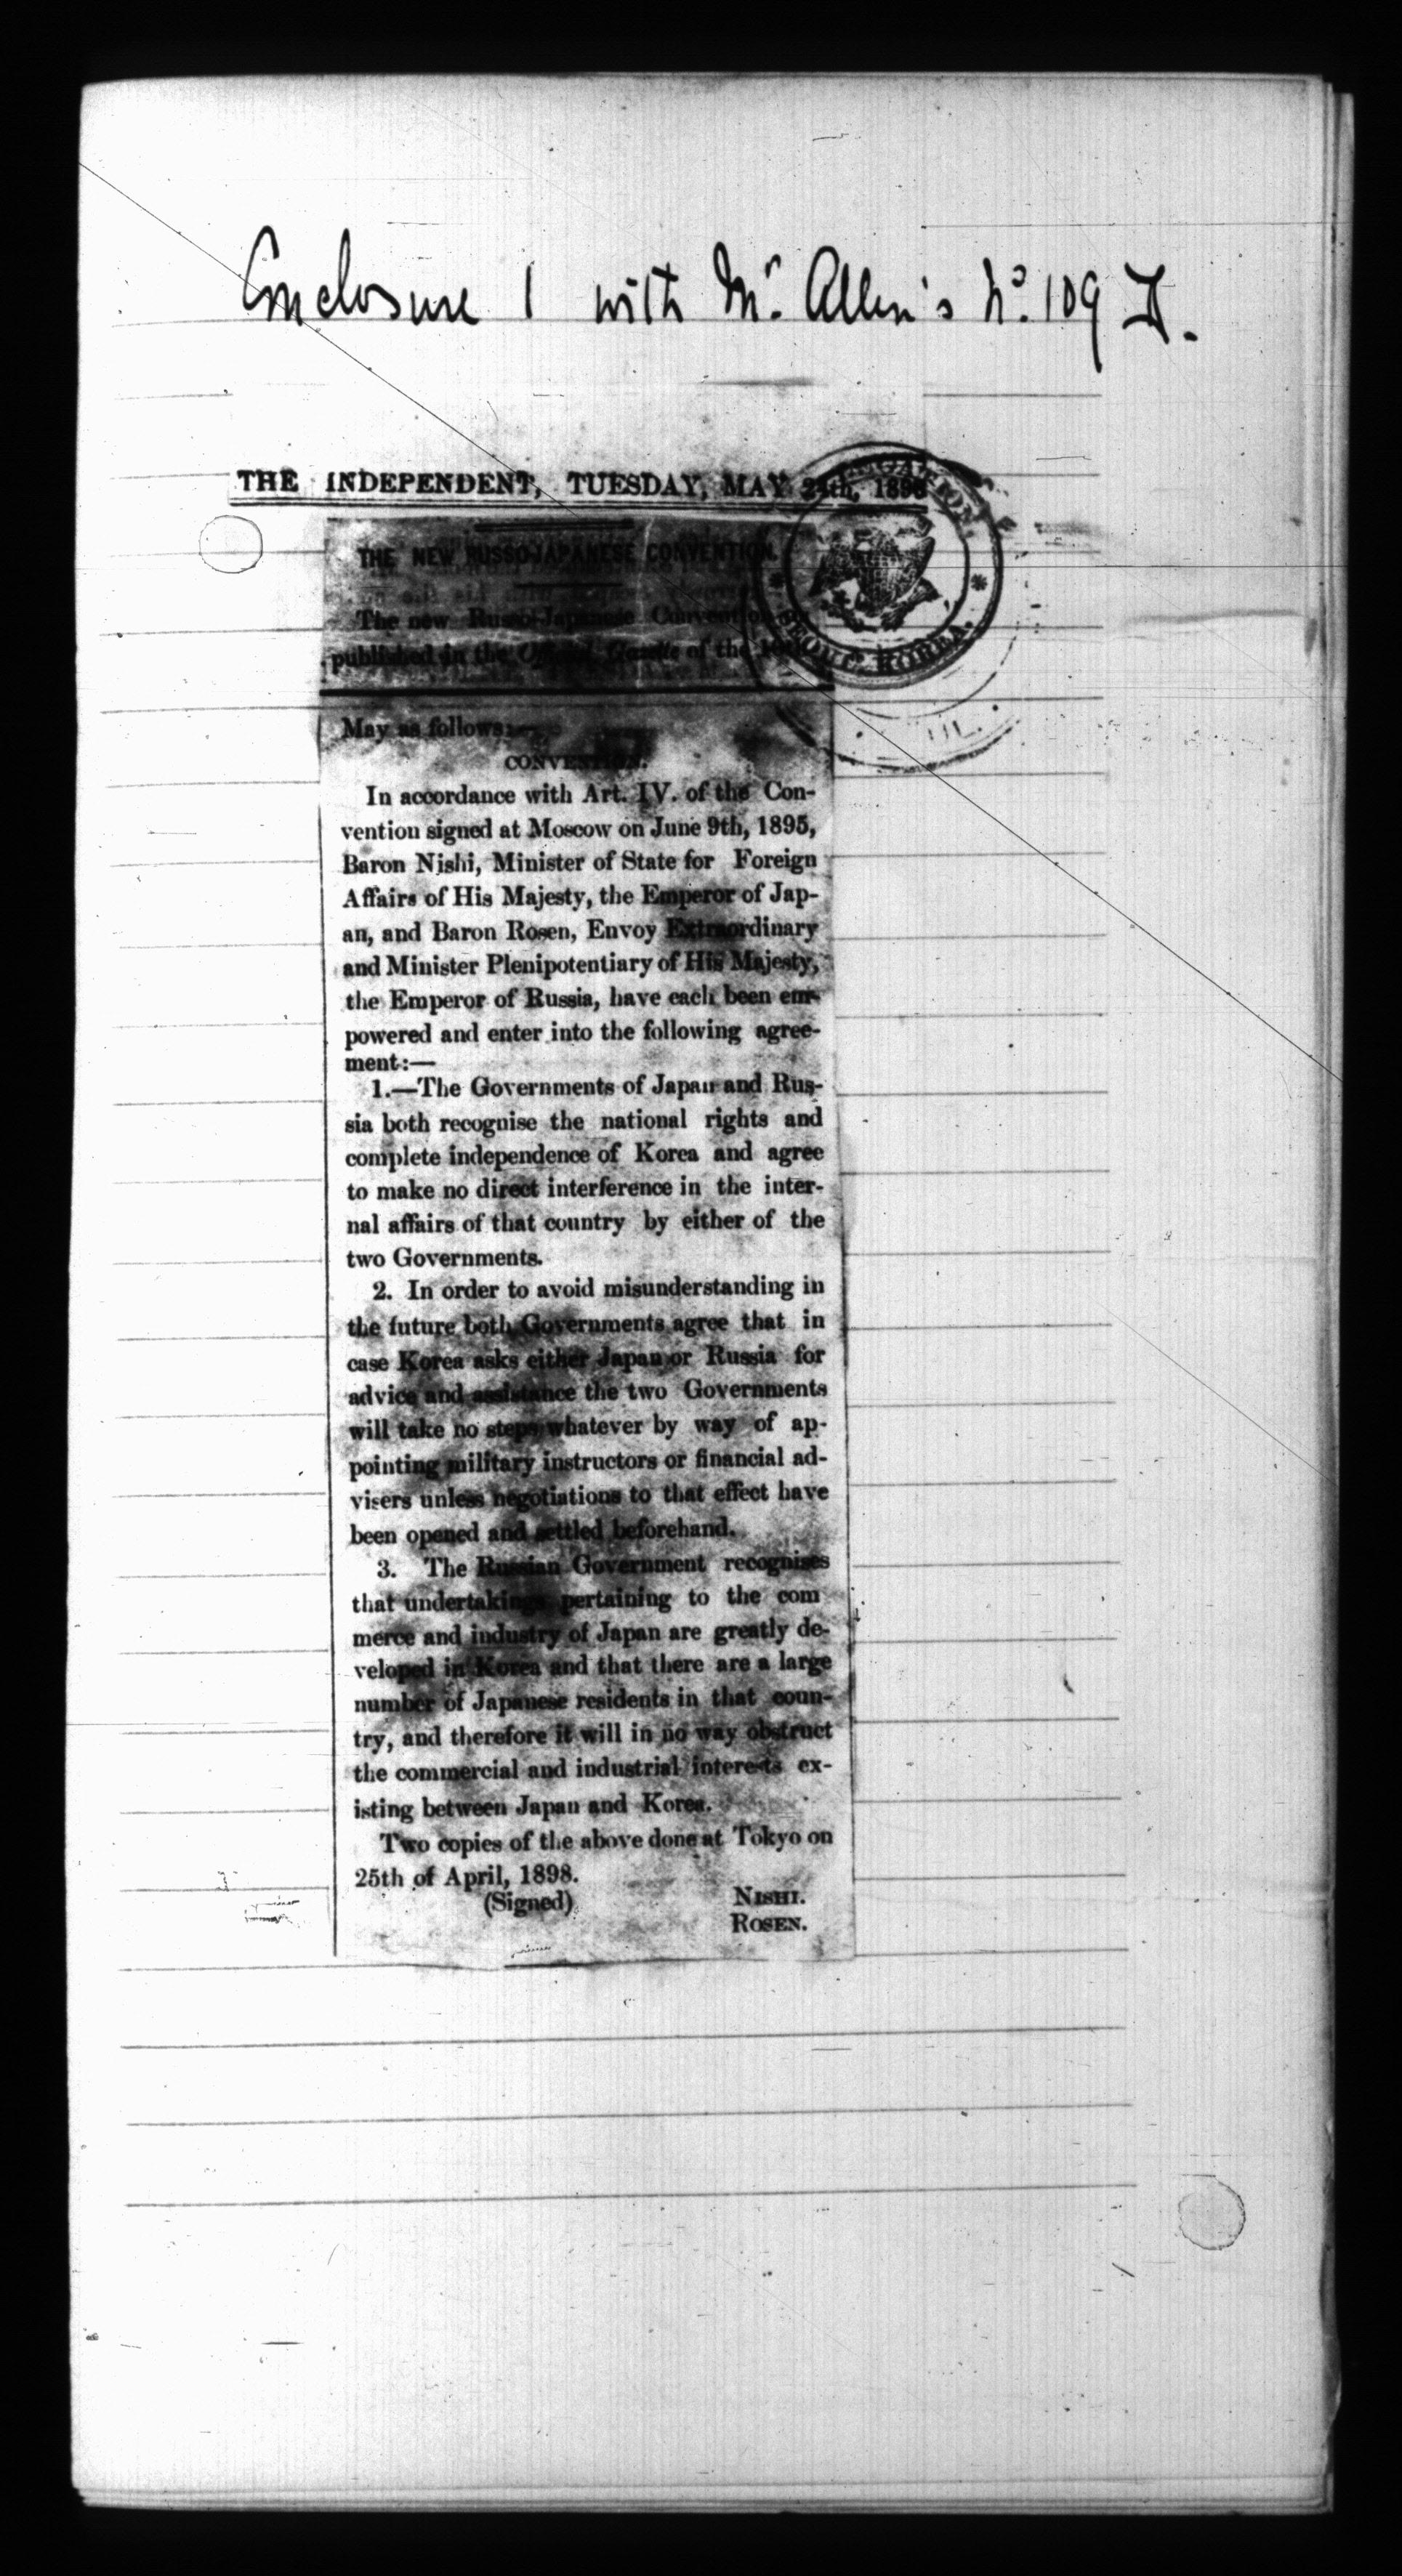 Enclosure 1 with Mr. Allen's No. 109 D.
THE INDEPENDENT, TUESDAY, MAY 24th, 1898
LEGATION
SEOUL KOREA.
THE NEW RUSSO-JAPANESE CONVENTION.
The new Russo-Japanese Convention
published in the Official Gazette of the 10th
May as follows:—
CONVENTION.
In accordance with Art. IV. of the Con-
vention signed at Moscow on June 9th, 1895,
Baron Nishi, Minister of State for Foreign
Affairs of His Majesty, the Emperor of Jap-
an, and Baron Rosen, Envoy Extraordinary
and Minister Plenipotentiary of His Majesty,
the Emperor of Russia, have each been em-
powered and enter into the following agree-
ment:—
1.—The Governments of Japan and Rus-
sia both recognise the national rights and
complete independence of Korea and agree
to make no direct interference in the inter-
nal affairs of that country by either of the
two Governments.
2. In order to avoid misunderstanding in
the future both Governments agree that in
case Korea asks either Japan or Russia for
advice and assistance the two Governments
will take no steps whatever by way of ap-
pointing military instructors or financial ad-
visers unless negotiations to that effect have
been opened and settled beforehand.
3. The Russian Government recognises
that undertakings pertaining to the com
merce and industry of Japan are greatly de-
veloped in Korea and that there are a large
number of Japanese residents in that coun-
try, and therefore it will in no way obstruct
the commercial and industrial interests ex-
isting between Japan and Korea.
Two copies of the above done at Tokyo on
25th of April, 1898.
(Signed) NISHI.
ROSEN.